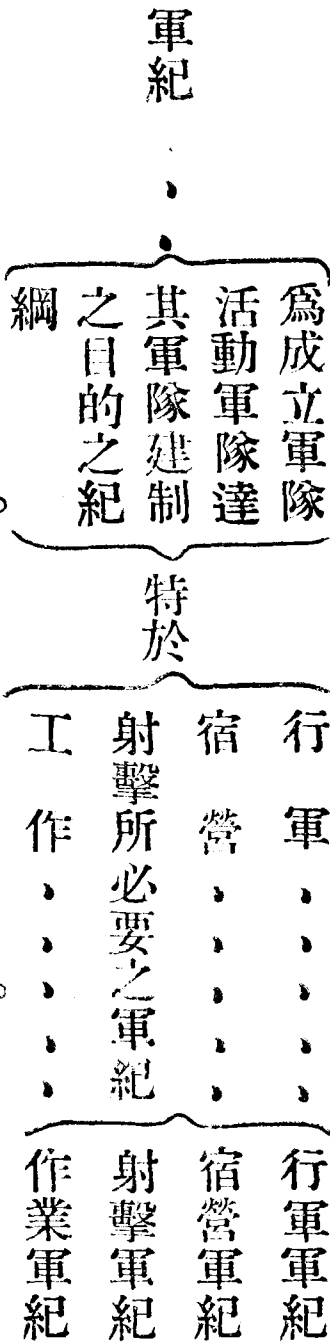 軍紀、、
爲成立軍隊
活動軍隊達
其軍隊建制
之目的之紀
綱。
特於
行軍、、、、、
宿營、、、、、
射擊所必要之軍紀
工作、、、、、。
行軍軍紀
宿營軍紀
射擊軍紀
作業軍紀